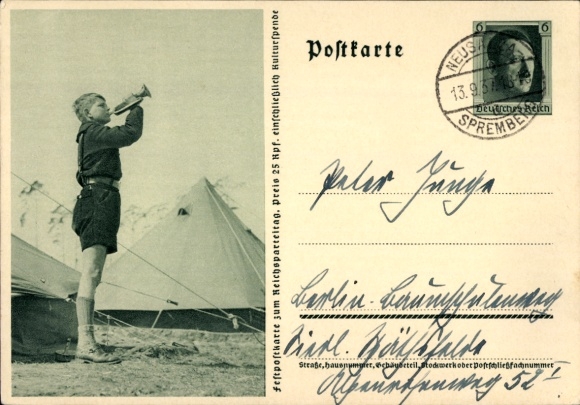 Postkarte
6 6
Deutsches Reich
NEUSA
13.9.37
SPREMBER
Festpostkarte zum Reichsparteitag. Preis 25 Rpf. einschließlich Kulturspende
Peter Junge
Berlin-Baumschulenweg
Straße, Hausnummer, Gebäudeteil, Stockwerk oder Postschließfachnummer
52 I